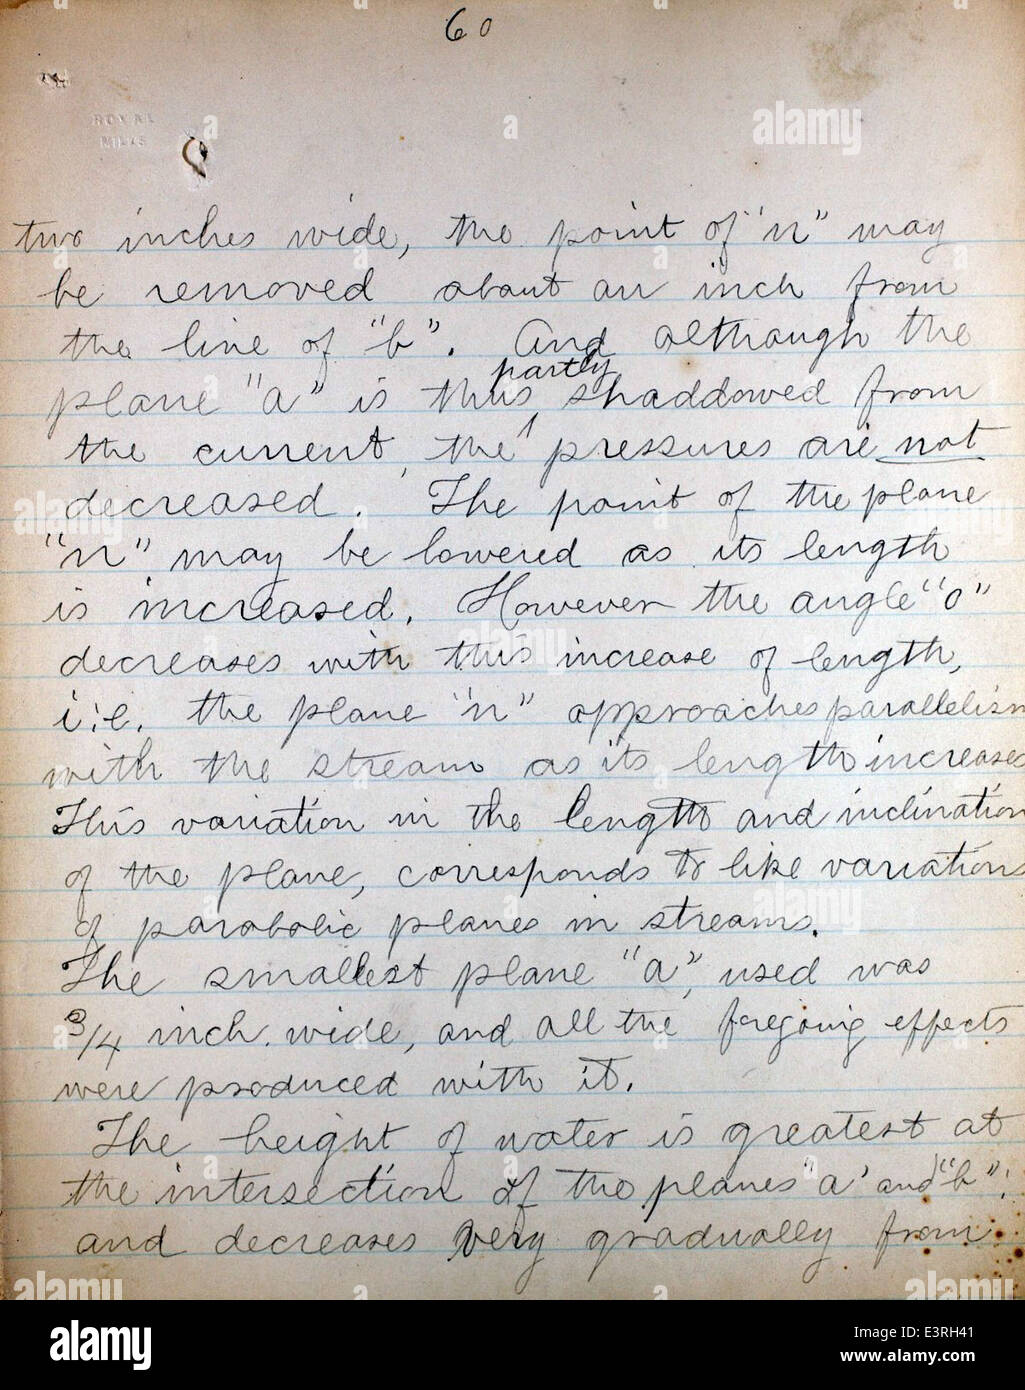 60
ROYAL
MILLS
two inches wide, the point of "n" may
be removed about an inch from
the line of "b". And although the
partly
plane "a" is thus ^ shaddowed from
the current, the pressures are not
decreased. The point of the plane
"n" may be lowered as its length
is increased. However the angle "o"
decreases with this increase of length,
i.e. the plane "n" approaches parallelism
with the stream as its length increases
This variation in the length and inclination
of the plane, corresponds to like variations
of parabolic planes in streams.
The smallest plane "a", used was
3/4 inch wide, and all the foregoing effects
were produced with it.
The height of water is greatest at
the intersection of the planes "a" and "b".
and decreases very gradually from
alamy
Image ID: E3RH41
www.alamy.com